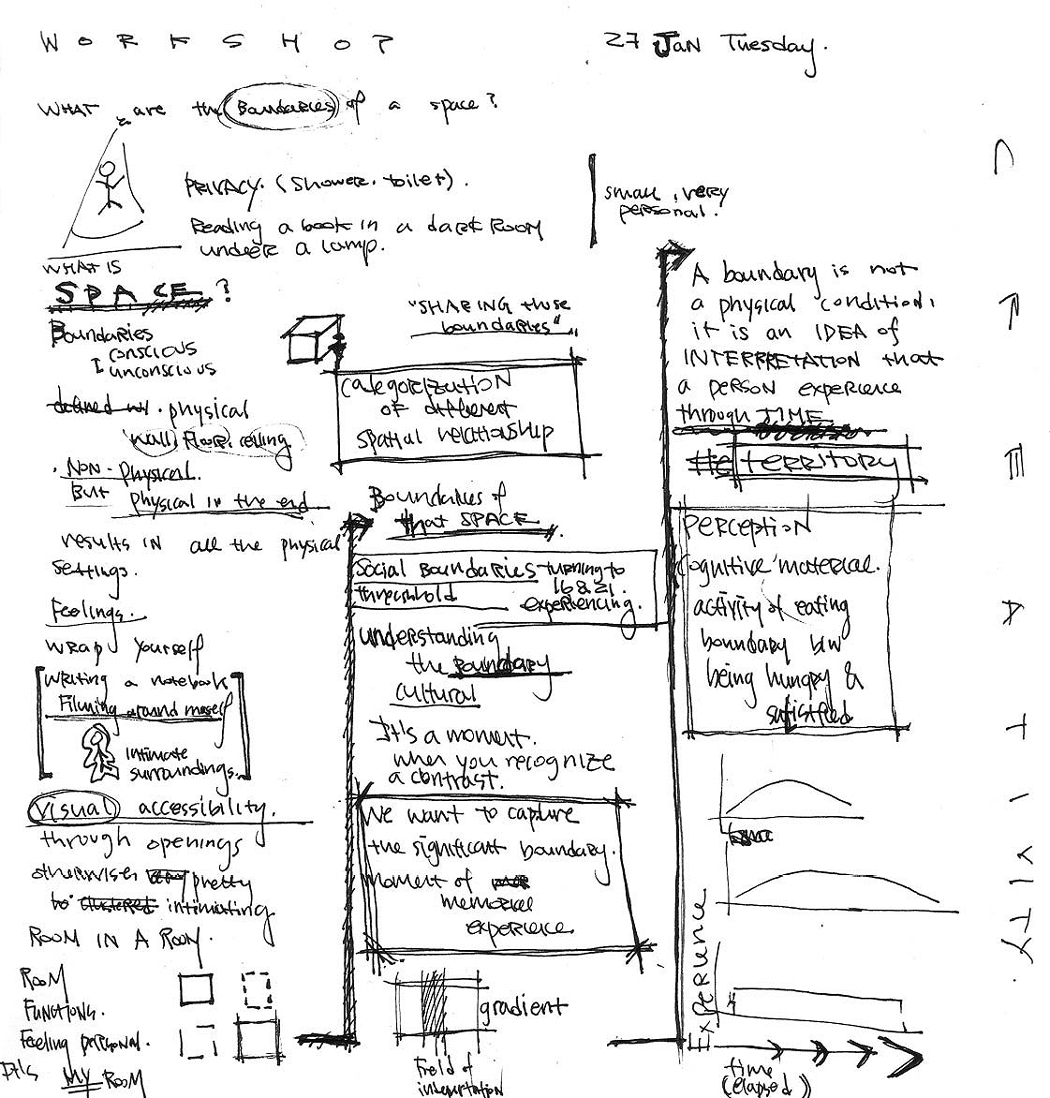 WORKSHOP
27 Jan Tuesday.
WHAT are the Boundaries of a space?
PRIVACY. (shower, toilet).
Reading a book in a dark room
under a lamp.
WHAT IS
SPACE?
Boundaries
conscious
unconscious
physical
wall, floor, ceiling
Non-physical.
But physical in the end
results in all the physical
settings.
Feelings.
wrap yourself
writing a notebook
Filming around myself
intimate
surroundings.
visual accessibility.
through openings
pretty
intimating
ROOM IN A ROOM.
ROOM
FUNCTIONS.
Feeling personal.
It's MY ROOM
"SHARING those
boundaries"
categorization
of different
spatial relationship
Boundaries of
that SPACE.
Social Boundaries turning to
threshold
experiencing.
understanding
the boundary
cultural
It's a moment.
when you recognize
a contrast.
We want to capture
the significant boundary.
moment of
memorial
experience.
gradient
Field of
small, very
personal.
A boundary is not
a physical condition,
it is an IDEA of
INTERPRETATION that
a person experience
through TIME
TERRITORY
PERCEPTION
cognitive material.
activity of eating
boundary b/w
being hungry &
satisfied
Experience
time
(elapsed)